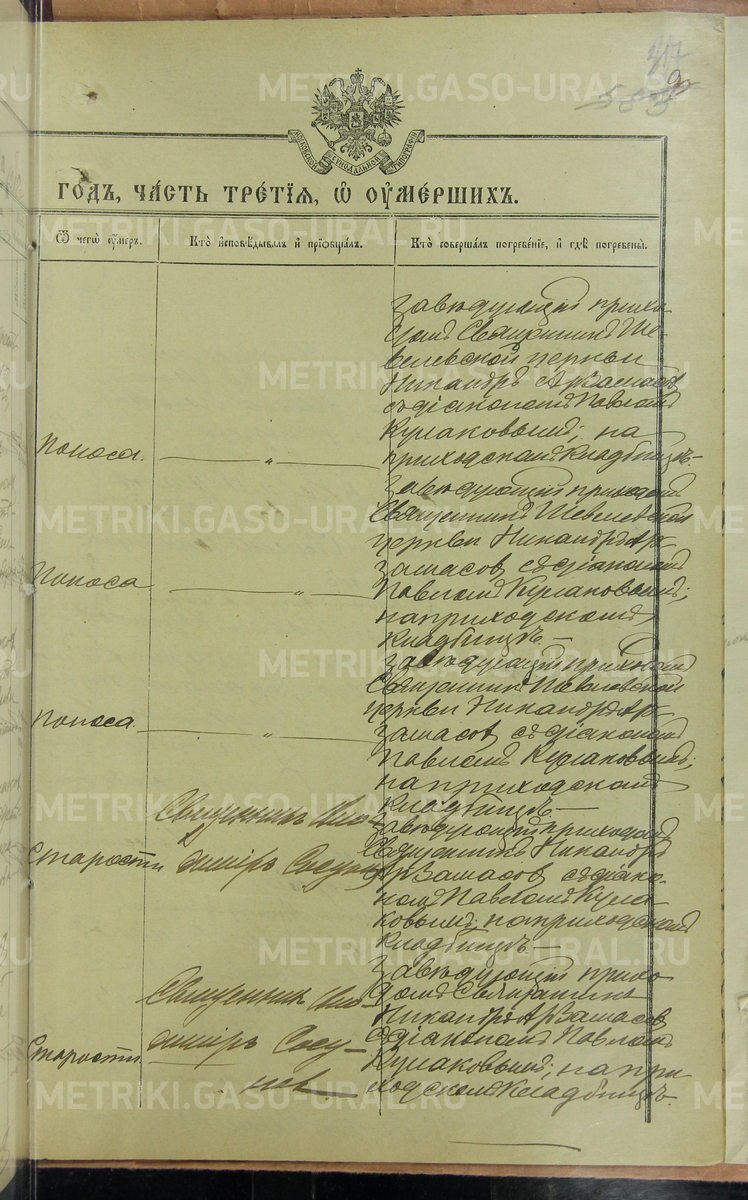 217
МОСКОВСКОЙ СѴНОДАЛЬНОЙ ТИПОГРАФІИ
ГОДЪ, ЧА́СТЬ ТРЕ́ТІѦ, Ѡ҆ ОУ҆МЕ́РШИХЪ.
Ѿ чегѡ̀ оу҆́меръ.
Кто̀ и҆сповѣ́дывалъ и҆ прїѡбща́лъ.
Кто̀ соверша́лъ погребе́нїе, и҆ гдѣ̀ погребены̀.
Поноса.
— „ —
завѣдующій прихо
домъ Священникъ Ше-
велевской церкви
Никандръ Арзамасов
съ діакономъ Павломъ
Кулаковымъ; на
приходскомъ кладбищѣ.
Поноса
— „ —
Завѣдующій приходомъ
Священникъ Шевелевской
церкви Никандръ Ар-
замасов съ діакономъ
Павломъ Кулаковымъ;
на приходскомъ
кладбищѣ —
Поноса
— „ —
завѣдующій приходомъ
Священникъ Шевелевской
церкви Никандръ Ар-
замасов съ діакономъ
Павломъ Кулаковымъ;
на приходскомъ
кладбищѣ —
Старости
Священникъ
завѣдующій приходомъ
Священникъ Никандръ
Арзамасов съ діако-
номъ Павломъ Кула
ковымъ; на приходскомъ
кладбищѣ —
Старости.
Священникъ
Завѣдующій прихо
домъ Священникъ
Никандръ Арзамасов
съ діакономъ Павломъ
Кулаковымъ; на при
ходскомъ кладбищѣ.
METRIKI.GASO-URAL.RU